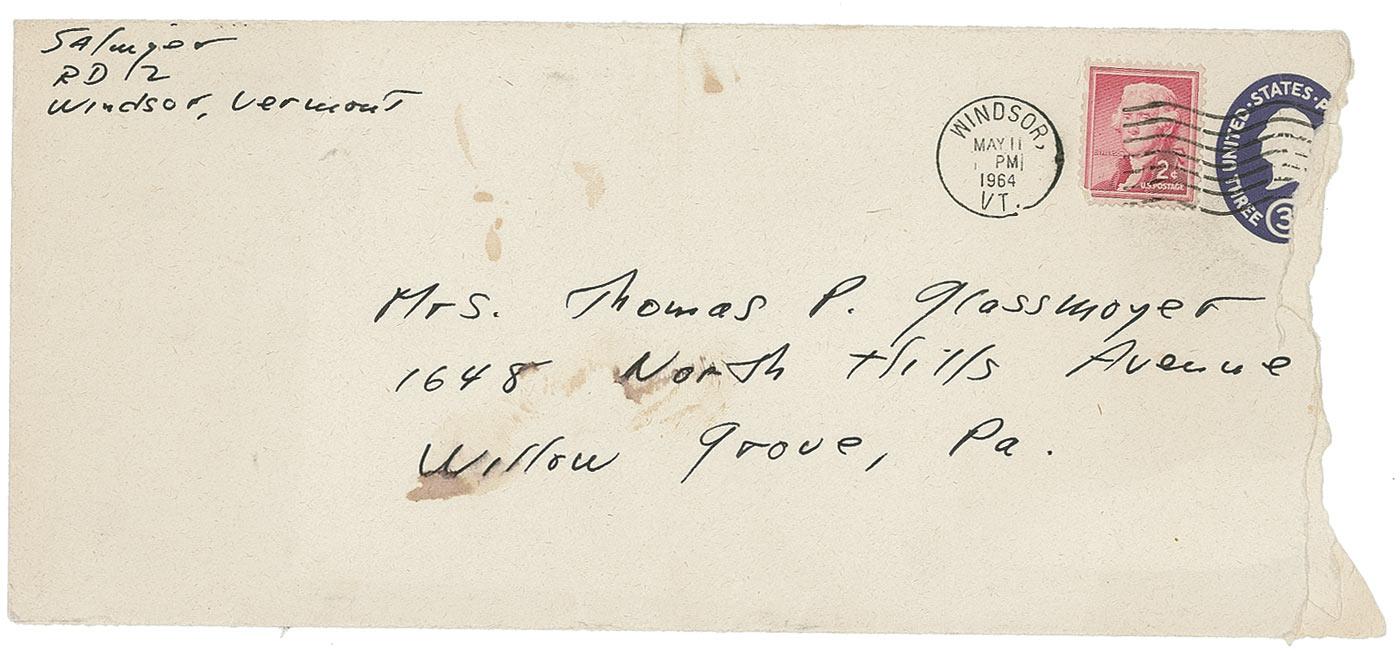 Salinger
RD 2
Windsor, Vermont
WINDSOR,
MAY 11
PM
1964
VT.
2¢
U.S. POSTAGE
UNITED·STATES·P
THREE
3
Mrs. Thomas P. Glassmoyer
1648 North Hills Avenue
Willow Grove, Pa.